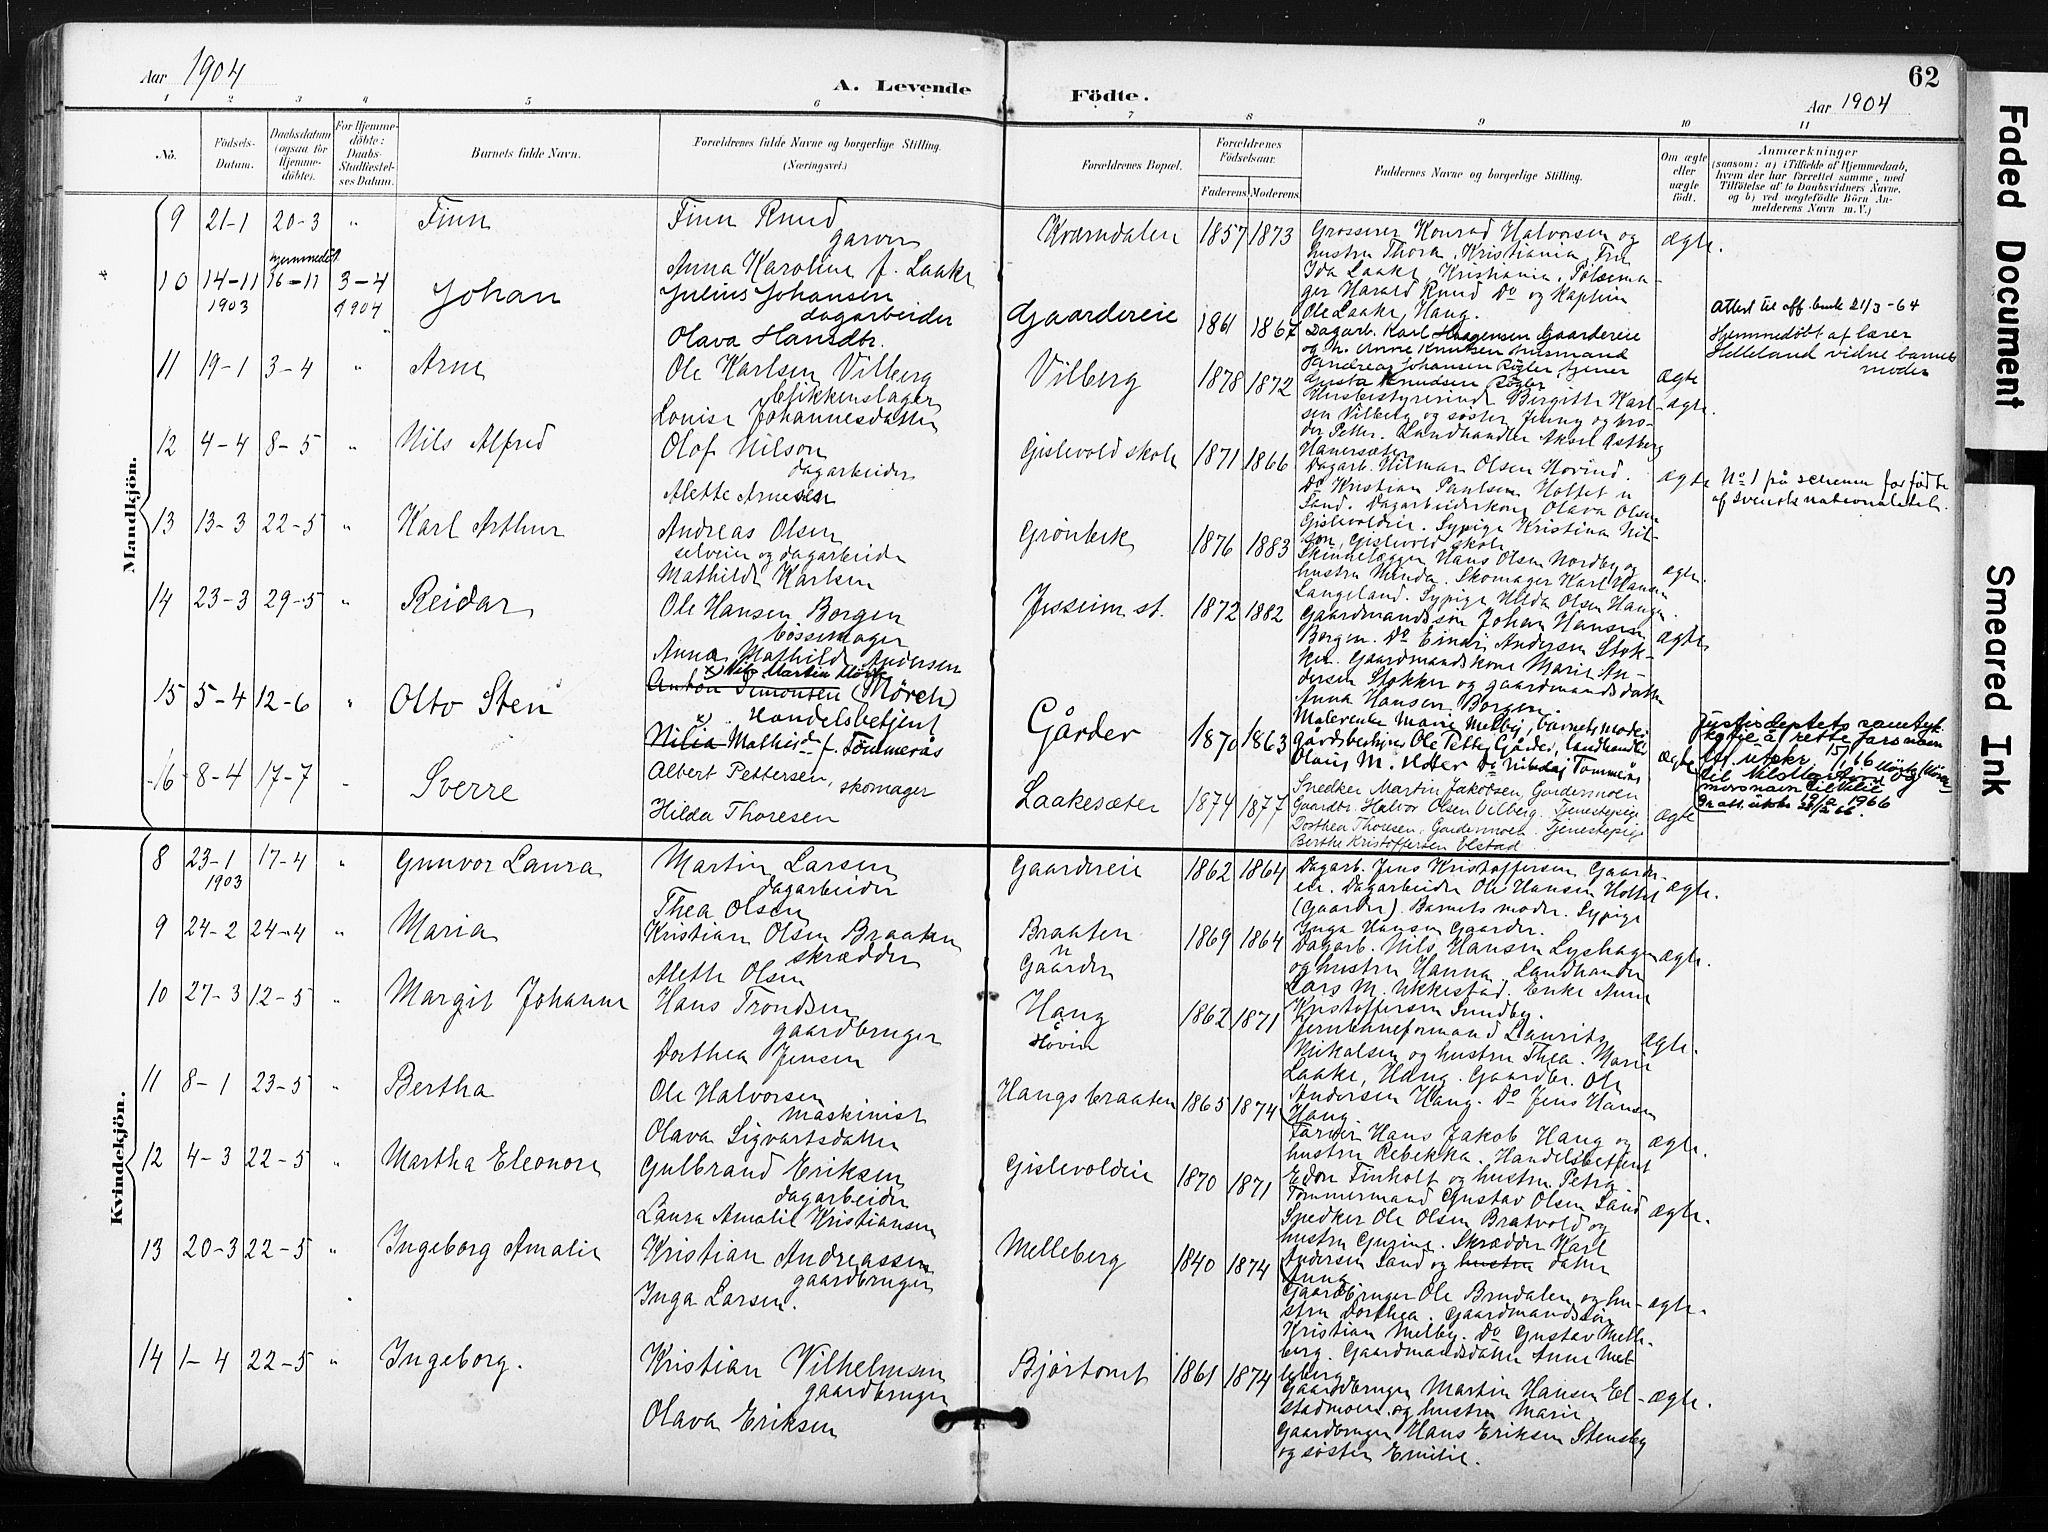 Aar 1904
A. Levende Födte.
62
Aar 1904
1 2 3 4 5 6 7 8 9 10 11
No.
Födsels-Datum.
Daabsdatum (ogsaa för Hjemme-döbte).
For Hjemme-döbte: Daabs-Stadfæstel-ses Datum.
Barnets fulde Navn.
Forældrenes fulde Navne og borgerlige Stilling.
(Næringsvei.)
Forældrenes Bopæl.
Forældrenes Födselsaar.
Faderens Moderens
Faddernes Navne og borgerlige Stilling.
Om ægte eller uægte födt.
Anmærkninger
(saasom: a) i Tilfælde af Hjemmedaab,
hvem der har forrettet samme, med
Tilföielse af to Daabsvidners Navne,
og b) ved uægtefödte Börn An-
melderens Navn m. V.)
Mandkjön.
9 21-1 20-3 " Finn
Finn Ruud
garver
Anna Karoline f. Laake
Kværndalen 1857 1873
Grosserer Konrad Halvorsen og
hustru Thora, Kristiania, Fru
Ida Laake, Kristiania, Pølsema-
ger Harald Ruud Do og Kaptein
Ole Laake, Haug.
ægte.
10 14-11 1903 hjemmedøbt 16-11 3-4 1904 Johan
Julius Johansen
dagarbeider
Olava Hansdtr.
Gaardereie 1861 1867
Dagarb. Karl Haagensen Gaardereie
og h. Anne Knutsen husmand
Andreas Johansen Røgler tjener
Gusta Knudsen Røgler
ægte
Attest til off. bruk 21/3-64
Hjemmedøbt af lærer
Helleland vidne barnets
moder
11 19-1 3-4 " Arne
Ole Karlsen Vilberg
blikkenslager
Louise Johannesdatter
Vilberg 1878 1872
Husbestyrerinde Birgitte Karl-
sen Vilberg og søster Jenny og bro-
der Petter. Landhandler Aksel Astberg
Hauersæter
ægte.
12 4-4 8-5 " Nils Alfred
Olof Nilson
dagarbeider
Alette Arnesen
Gislevold skole 1871 1866
Dagarb. Hilmar Olsen Hovind.
Do Kristian Paulsen Holtet u
Sand. Dagarbeiderkone Olava Olsen
Gislevoldeie. Sypige Kristina Nil-
son, Gislevold skole
ægte
No 1 på schema for fødte
af svensk nationalitet.
13 13-3 22-5 " Karl Arthur
Andreas Olsen
selveier og dagarbeider
Mathilde Karlsen
Grønbek 1876 1883
Skindelægger Hans Olsen Nordby og
hustru Minda. Skomager Karl Hansen
Langeland. Sypige Hilda Olsen Haugen.
ægte.
14 23-3 29-5 " Reidar
Ole Hansen Borgen
bøssemager
Anna Mathilde Andersen
Jessheim st. 1872 1882
Gaardmandssøn Johan Hansen
Borgen. Do Einar Andersen Stok-
ker. Gaardmandskone Marie An-
dersen Stokker og gaardmandsdatter
Anna Hansen Borgen.
ægte.
15 5-4 12-6 " Otto Sten
x) Nils Martin Mörk
Anton Simonsen (Mörch)
Handelsbetjent
Nilia Mathilde f. Tömmerås
Gårder 1870 1863
Malerenke Marie Melby, barnets moder
gårdsbestyrer Ole Petter Gårder, landhandler
Olaus M. Do Nikolaj Tömmerås
ægte
15/1 66
til Nils Martin Mörk
19/2 1966
16 8-4 17-7 " Sverre
Albert Pettersen, skomager
Hilda Thoresen
Laakesæter 1874 1877
Snedker Martin Jakobsen, Gardermoen
Gaardbr. Halvor Olsen Vilberg. Tjenestepige
Dorthea Thoresen, Gardermoen. Tjenestepige
Berthe Kristoffersen Elstad
ægte
Kvindekjön.
8 23-1 1903 17-4 " Gunvor Laura
Martin Larsen
dagarbeider
Thea Olsen
Gaardereie 1862 1864
Dagarb. Jens Kristoffersen Gaarder-
eie. Dagarbeider Ole Hansen Holtet
(Gaarder). Barnets moder. Sypige
Inga Hansen Gaarder.
ægte.
9 24-2 24-4 " Maria
Kristian Olsen Braaten
skrædder
Alette Olsen
Braaten
u
Gaarder
1869 1864
Dagarb. Nils Hansen Lyshagen
og hustru Hanna. Landhandler
Lars M. Ukkestad. Enke Anne
Kristoffersen Sundby.
ægte.
10 27-3 12-5 " Margit Johanne
Hans Trondsen
gaardbruger
Dorthea Jensen
Haug
Høvin
1862 1871
Jernbaneformand Lauritz
Mikalsen og hustru Thea. Marie
Laake, Haug. Gaardbr. Ole
Andersen Haug. Do Jens Hansen
Haug.
ægte.
11 8-1 23-5 " Bertha
Ole Halvorsen
maskinist
Olava Sigvartsdatter
Haugsbraaten 1865 1874
Farver Hans Jakob Haug og
hustru Rebekka. Handelsbetjent
Edon Finholt og hustru Petra.
ægte.
12 4-3 22-5 " Martha Eleonore
Gulbrand Eriksen
dagarbeider
Laura Amalie Kristiansen
Gislevoldeie 1870 1871
Tømmermand Gustav Olsen Sand
Snedker Ole Olsen Bratvold og
hustru Gurine. Skrædder Karl
Andersen Sand og hustru datter
Anna
ægte.
13 20-3 22-5 " Ingeborg Amalie
Kristian Andreassen
gaardbruger
Inga Larsen.
Melleberg 1840 1874
Gaardbruger Ole Brudalen og hu-
stru Dorthea. Gaardmandssøn
Kristian Melby. Do Gustav Melle-
berg. Gaardmandsdatter Anne Mel-
leberg
ægte.
14 1-4 22-5 " Ingeborg.
Kristian Vilhelmsen
gaardbruger
Olava Eriksen
Bjørtomt 1861 1874
Gaardbruger Martin Hansen El-
stadmoen og hustru Marie
Gaardbruger Hans Eriksen Stensby
og søster Emilie.
ægte.
Faded Document
Smeared Ink